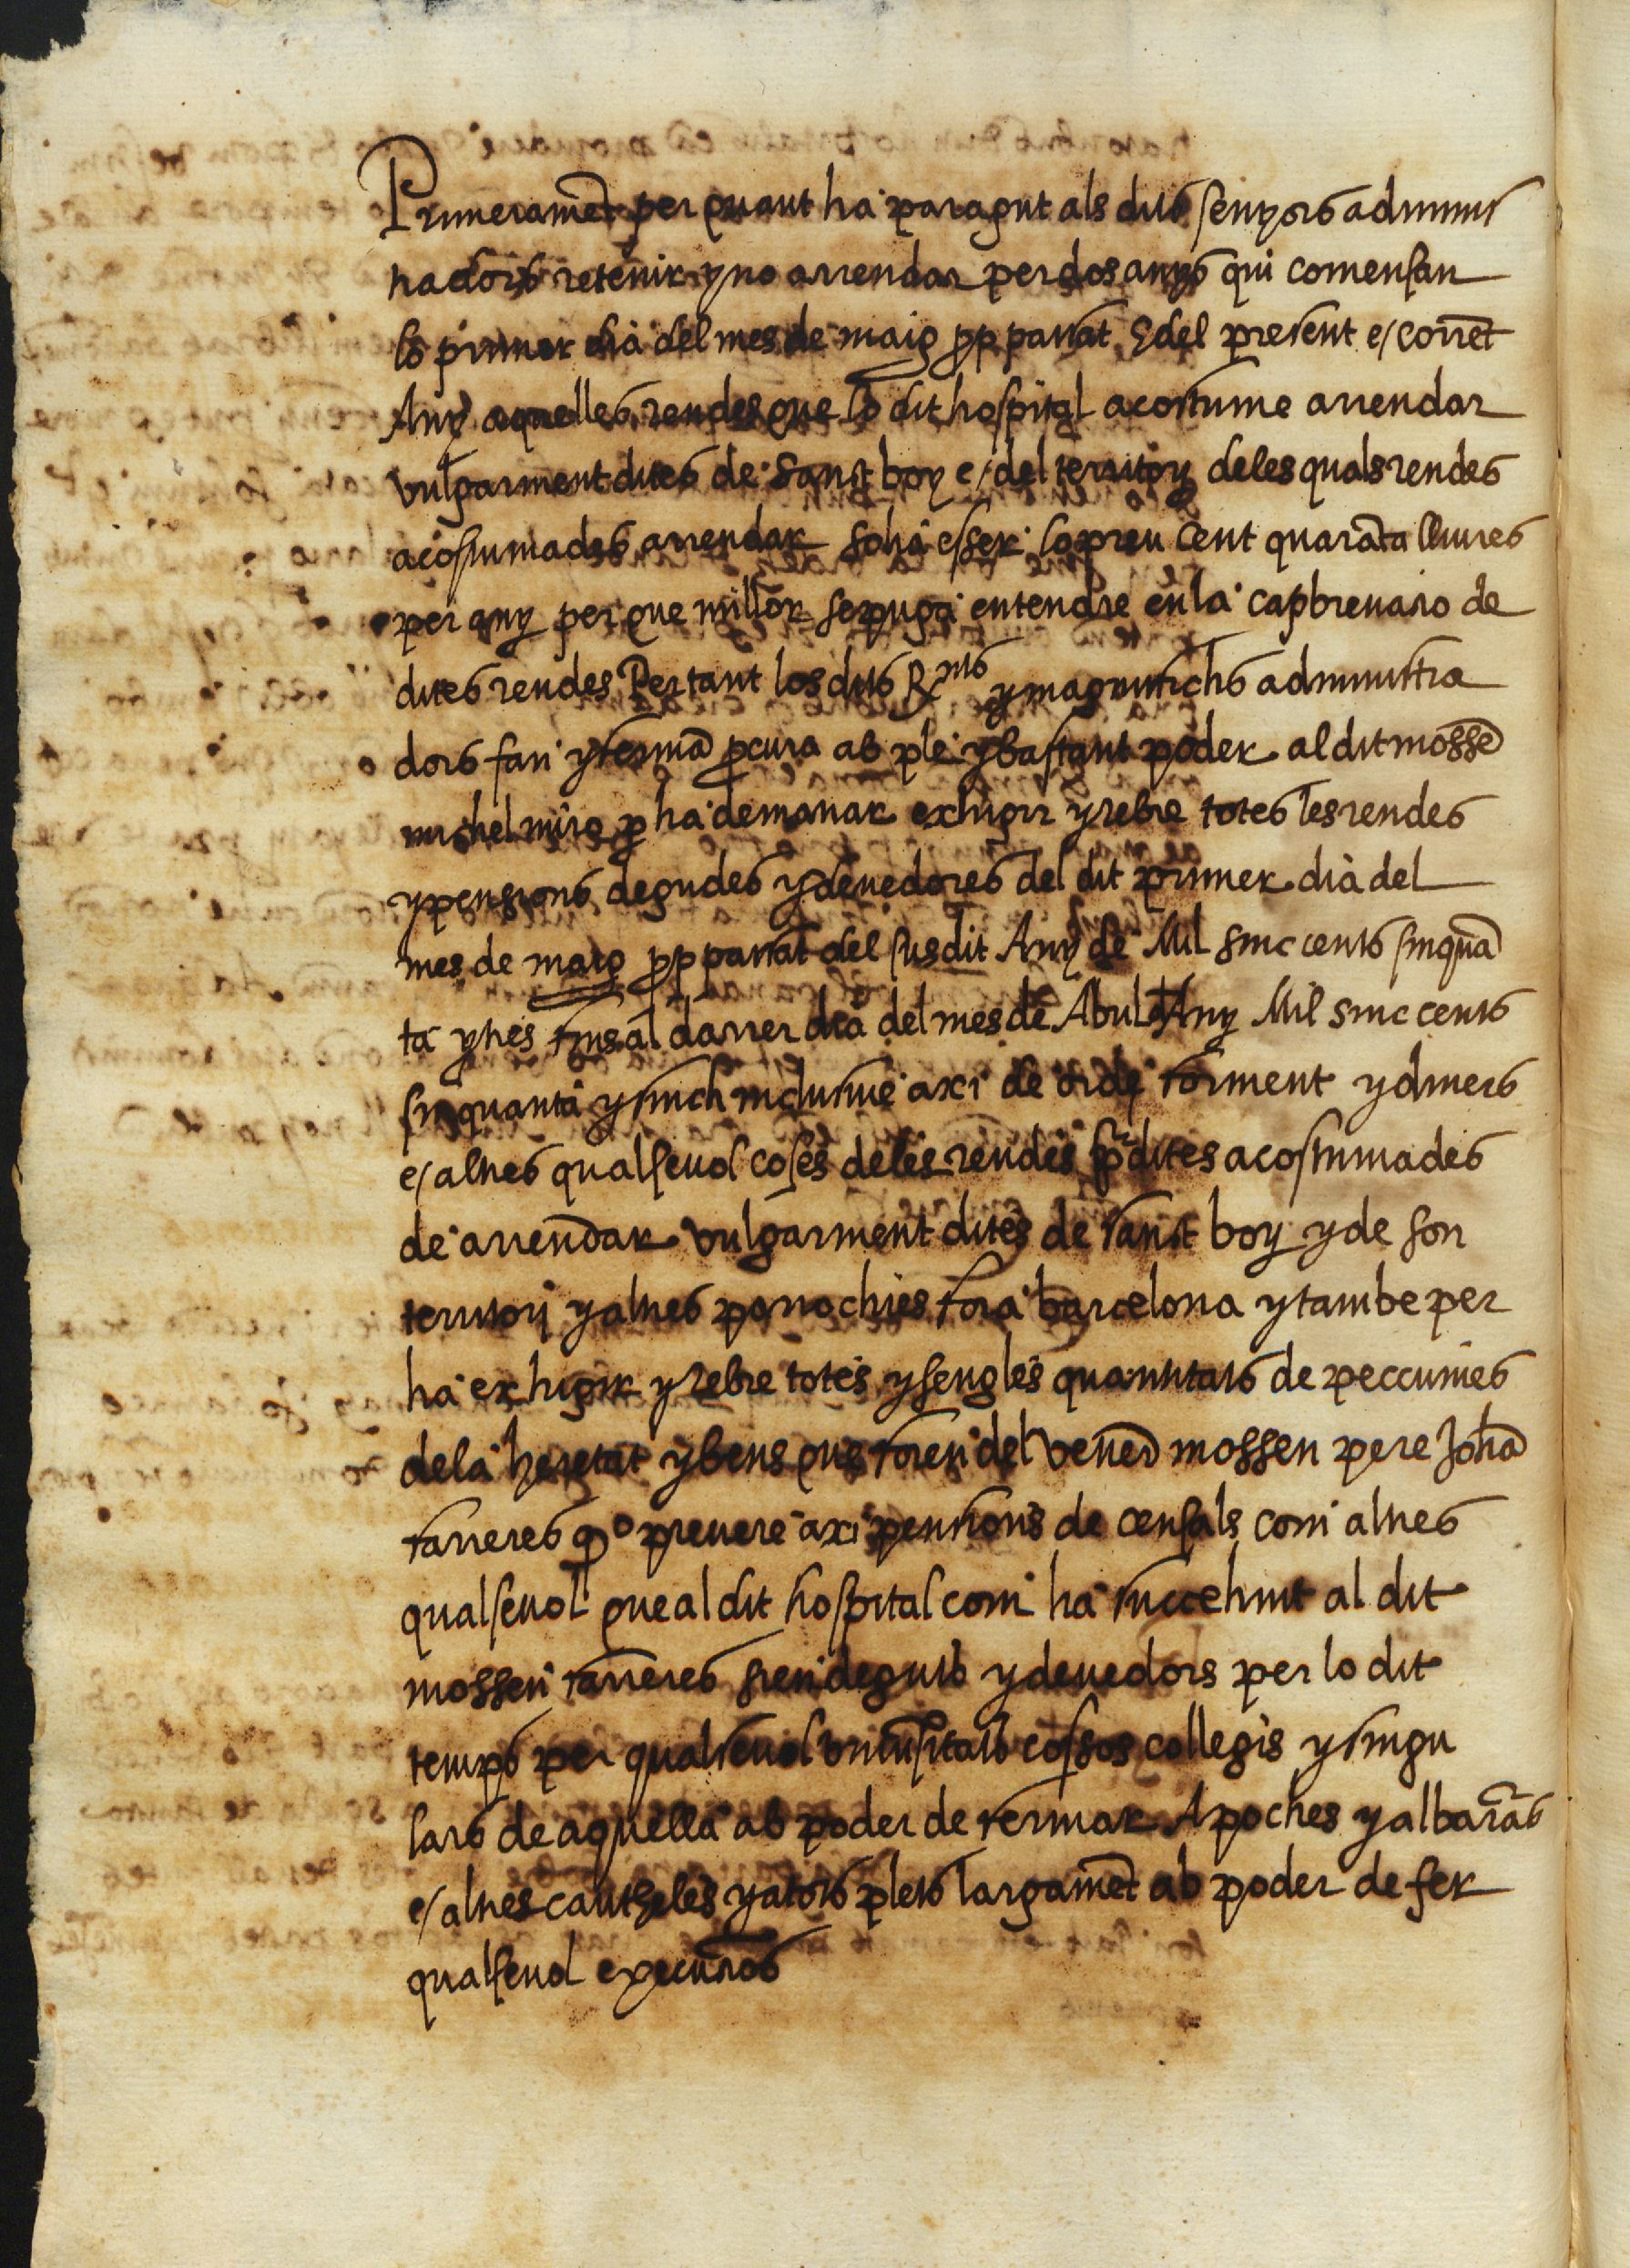 Primerament per quant ha paragut als dits senyors adminis
tradors retenir y no arrendar per dos anys qui comensan
lo primer dia del mes de maig pp passat E del present e/ corrêt
Any aquelles rendes que lo dit hospital acostume arrendar
vulgarment dites de Sanct boy e/ del territory deles quals rendes
acostumades arrendar solia esser lo preu Cent quarāta lliures
per any per que millor se puga entendre en la capbrevatio de
dites rendes Per tant los dits R^nts y magnifichs administra
dors fan y ferma pcura ab ple y bastant poder al dit mossē
michel miro p ha demanar exhigir y rebre totes les rendes
y pensions degudes y devedores del dit primer dia del
mes de maig pp passat del susdit Any de Mil sinc cents sinquā
ta y tres fins al darrer dia del mes de Abril d Any Mil sinc cents
sinquanta y sinch inclusive axi de ordi forment y diners
e/ altres qualsevol coses deles rendes sr̄dites acostumades
de arrendar vulgarment dites de Sanct boy y de son
territori y altres parrochies fora barcelona y tambe per
ha exhigir y rebre totes y sengles quantitats de peccunies
dela heretat y bens que foren del Venēr mossen pere Johā
farreres q° prevere axi pensions de censals com altres
qualsevol que al dit hospital com ha succehint al dit
mossen farreres sien deguts y devedors per lo dit
temps per qualsevol univsitats cossos collegis y singu
lars de aquella ab poder de fermar Apoches y albarās
e/ altres cautheles y a tots plets largamēt ab poder de fer
qualsevol executios